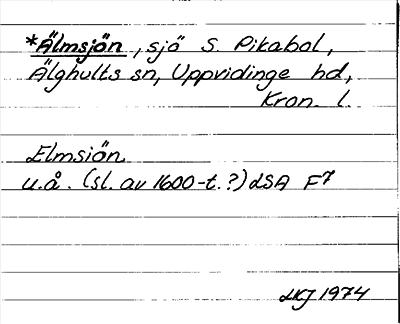 *Älmsjön, sjö S. Pikabol,
Älghults sn, Uppvidinge hd,
Kron. l.
Elmsiön
u.å. (sl. av 1600-t.?) LSA F7
LKJ 1974